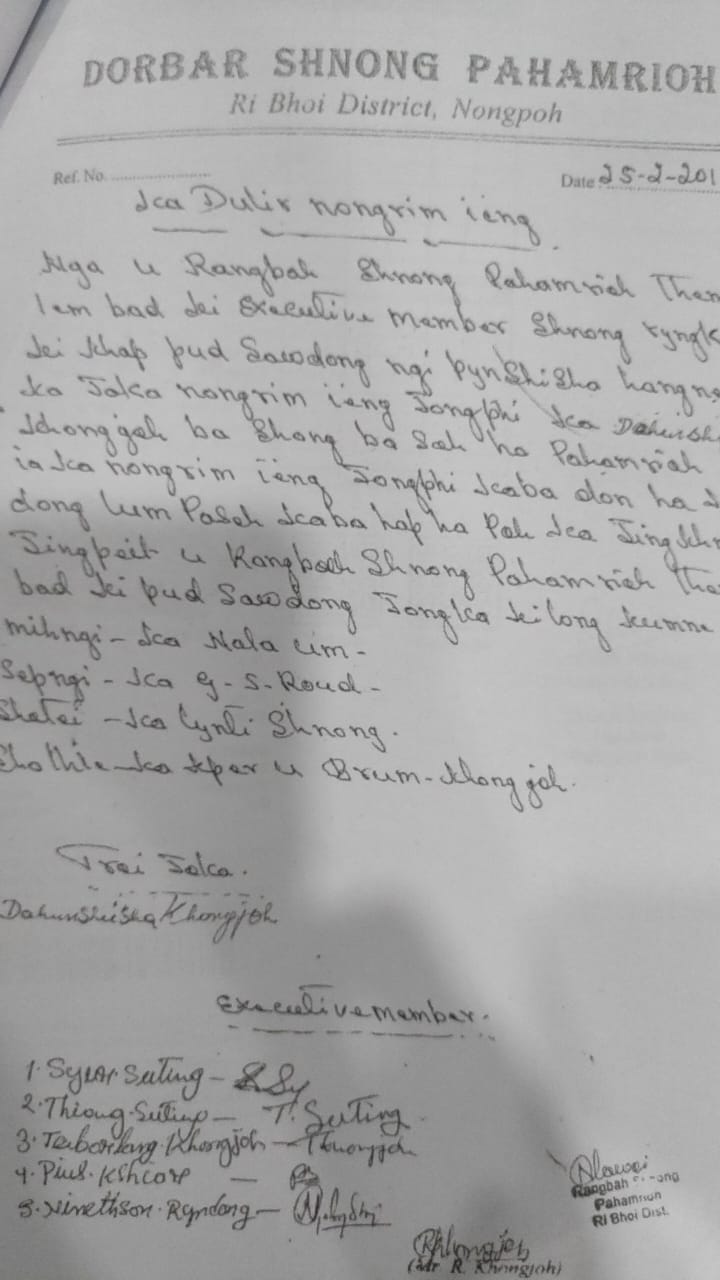 DORBAR SHNONG PAHAMRIOH
Ri Bhoi District, Nongpoh
Ref. No. .................... Date 25-2-201
Ka Dulir nongrim ieng
Nga u Rangbah Shnong Pahamrioh Them
lem bad ki Executive Member Shnong ryngk
ki khap pud Sawdong ngi pynshisha hangne
ka Jaka nongrim ieng Jongphi ka Dahunshi
Khongjoh ba Shong ba Sah ha Pahamrioh
ia ka nongrim ieng Jongphi kaba don ha
dong lum Paseh kaba hap ha Poh ka Jing
Jingpeit u Rangbah Shnong Pahamrioh
bad ki pud Sawdong Jongka kilong kumne
mihngi - ka Nala um -
Sepngi - ka G. S. Roud -
Shatei - ka Lynti Shnong.
ka kper u Brum - Khongjoh.
Trai Jaka.
Dahunshisha Khongjoh
Executive member.
1. Suting -
2. Thiong Suting - T. Suting
3. Khongjoh -
4. Pius. -
5. Ryndang -
Rangbah
Pahamrioh
Ri Bhoi Dist.
(Mr R. Khongjoh)